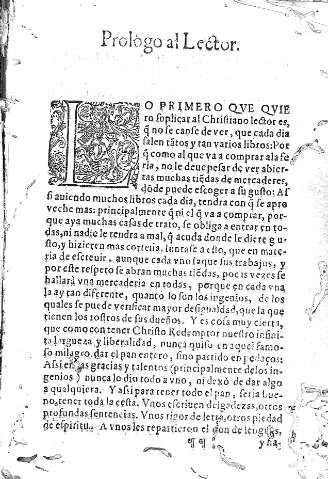 Prologo al Lector.
LO PRIMERO QVE QVIE
ro suplicar al Christiano lector es,
q̃ no se canse de ver, que cada dia
salen tãtos y tan varios libros: Por
q̃ como al que va a comprar a la fe
ria, no le deue pesar de ver abier-
tas muchas tiẽdas de mercaderes,
dõde puede escoger a su gusto: Assi
si auiendo muchos libros cada dia, tendra con q̃ se apro
veche mas: principalmente q̃ ni el q̃ va a comprar, por-
que aya muchas casas de trato, se obliga a entrar en to-
das, ni nadie le tendra a mal, q̃ acuda donde le diere gu-
sto, y hizieren mas cortesia. Iuntase a esto, que en mate-
ria de escreuir, aunque cada vno saque sus trabajos, y
por este respeto se abran muchas tiẽdas, pocas vezes se
hallarà vna merceria en todas, porque en cada vna
la ay tan diferente, quanto lo son los ingenios, de los
quales se puede verificar mayor desigualdad, que la que
tienen los rostros de sus dueños. Y es cosa muy cierta,
que como con tener Christo Redemptor nuestro infini-
ta largueza y liberalidad, nunca quiso en aquel famo-
so milagro, dar el pan entero, sino partido en pedaços:
Assi en las gracias y talentos (principalmente de los in-
genios) nunca lo dio todo a vno, ni dexò de dar algo
a qualquiera. Y assi para tener todo el pan, seria bue-
no, tener toda la cesta. Vnos escriuen delgadezas, otros
profundas sentencias. Vnos rigor de letra, otros piedad
de espiritu. A vnos les repartieron el don de lenguas,
¶ ¶ y ha-